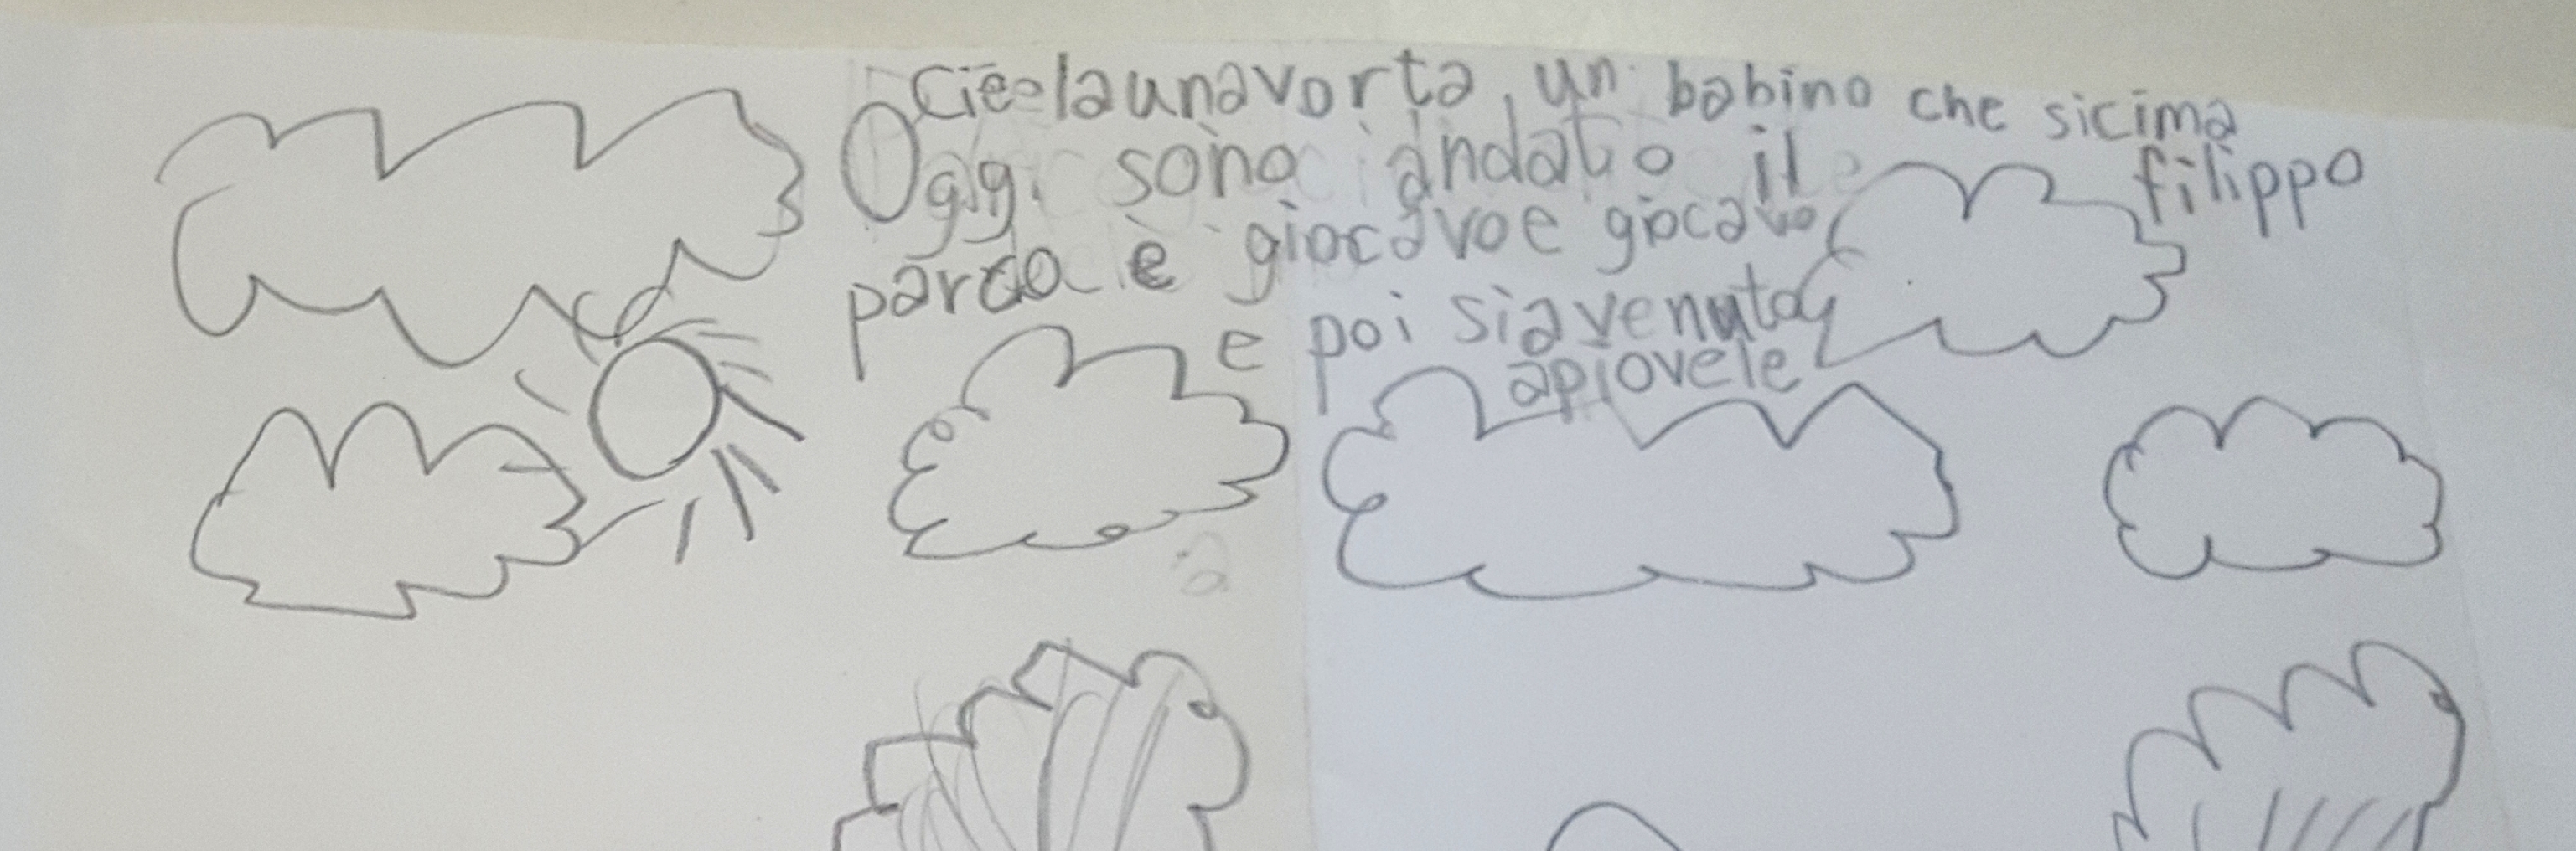 Cieelaunavorta, un babino che sicima
filippo
Oggi sono andato il
parco è giocavo e giocavo
e poi siavenuto
apiovele